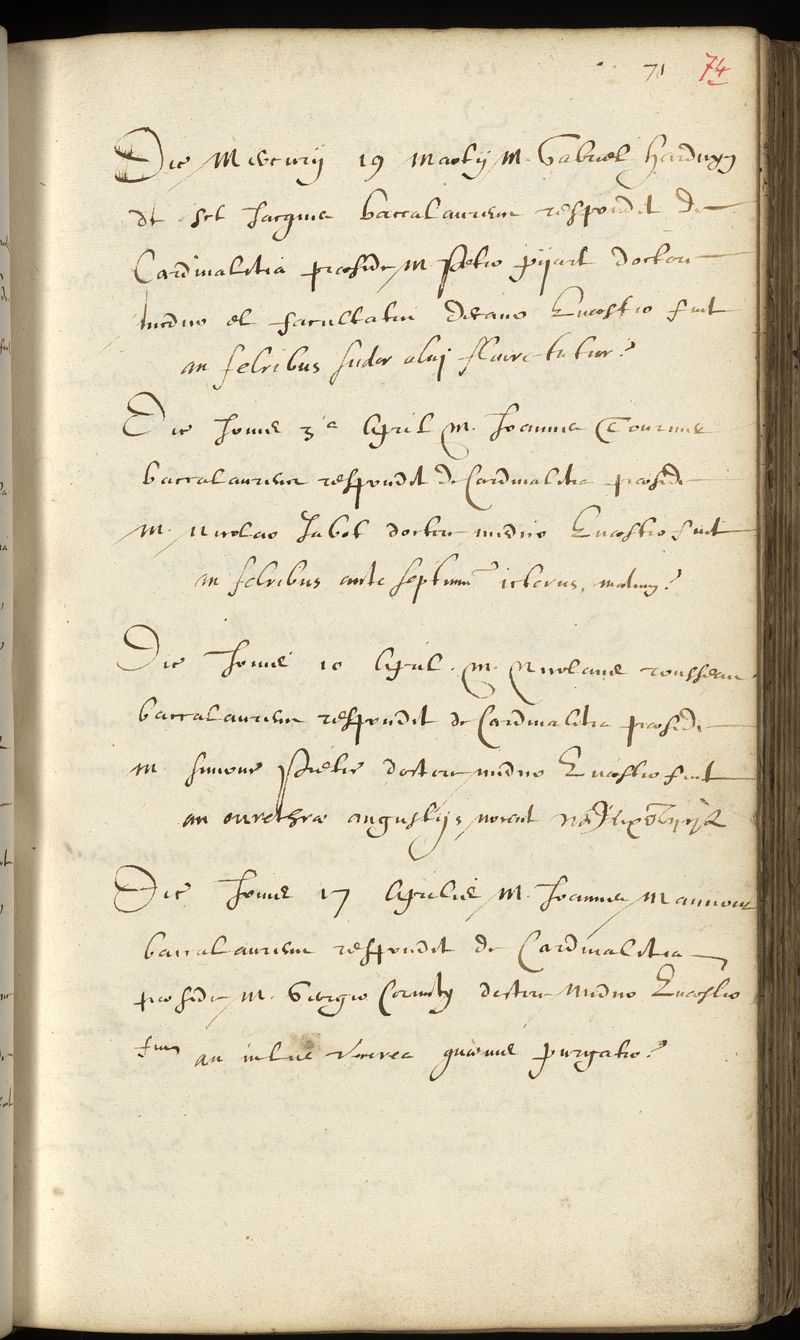 71 74
Die Mercurij 19 Martij M. Gabriel Harduyn
de sct Jacques baccalaureus respondit de
Cardinalitia praeside M. Petro pijart doctore
medico et facultatis decano Quaestio fuit
an febribus sudor alvi fluore tutior?
Die Jovis 3a April M. Joannes Tournus
baccalaureus respondit de Cardinalitia praeside
M. Nicolao Jabot doctore medico Quaestio fuit
in febribus ante septimum icterus, malum?
Die Jovis 10 April. M. Nicolaus rousseau
baccalaureus respondit de Cardinalitia praeside
M. Simone Pietre doctore medico Quaestio fuit
an ourethrae angustijs nocent
Die Jovis 17 Aprilis M. Joannes Mannoury
baccalaureus respondit de Cardinalitia
praeside M. Georgio Cornuty doctore Medico Quaestio
fuit an in lue venerea purgatio?